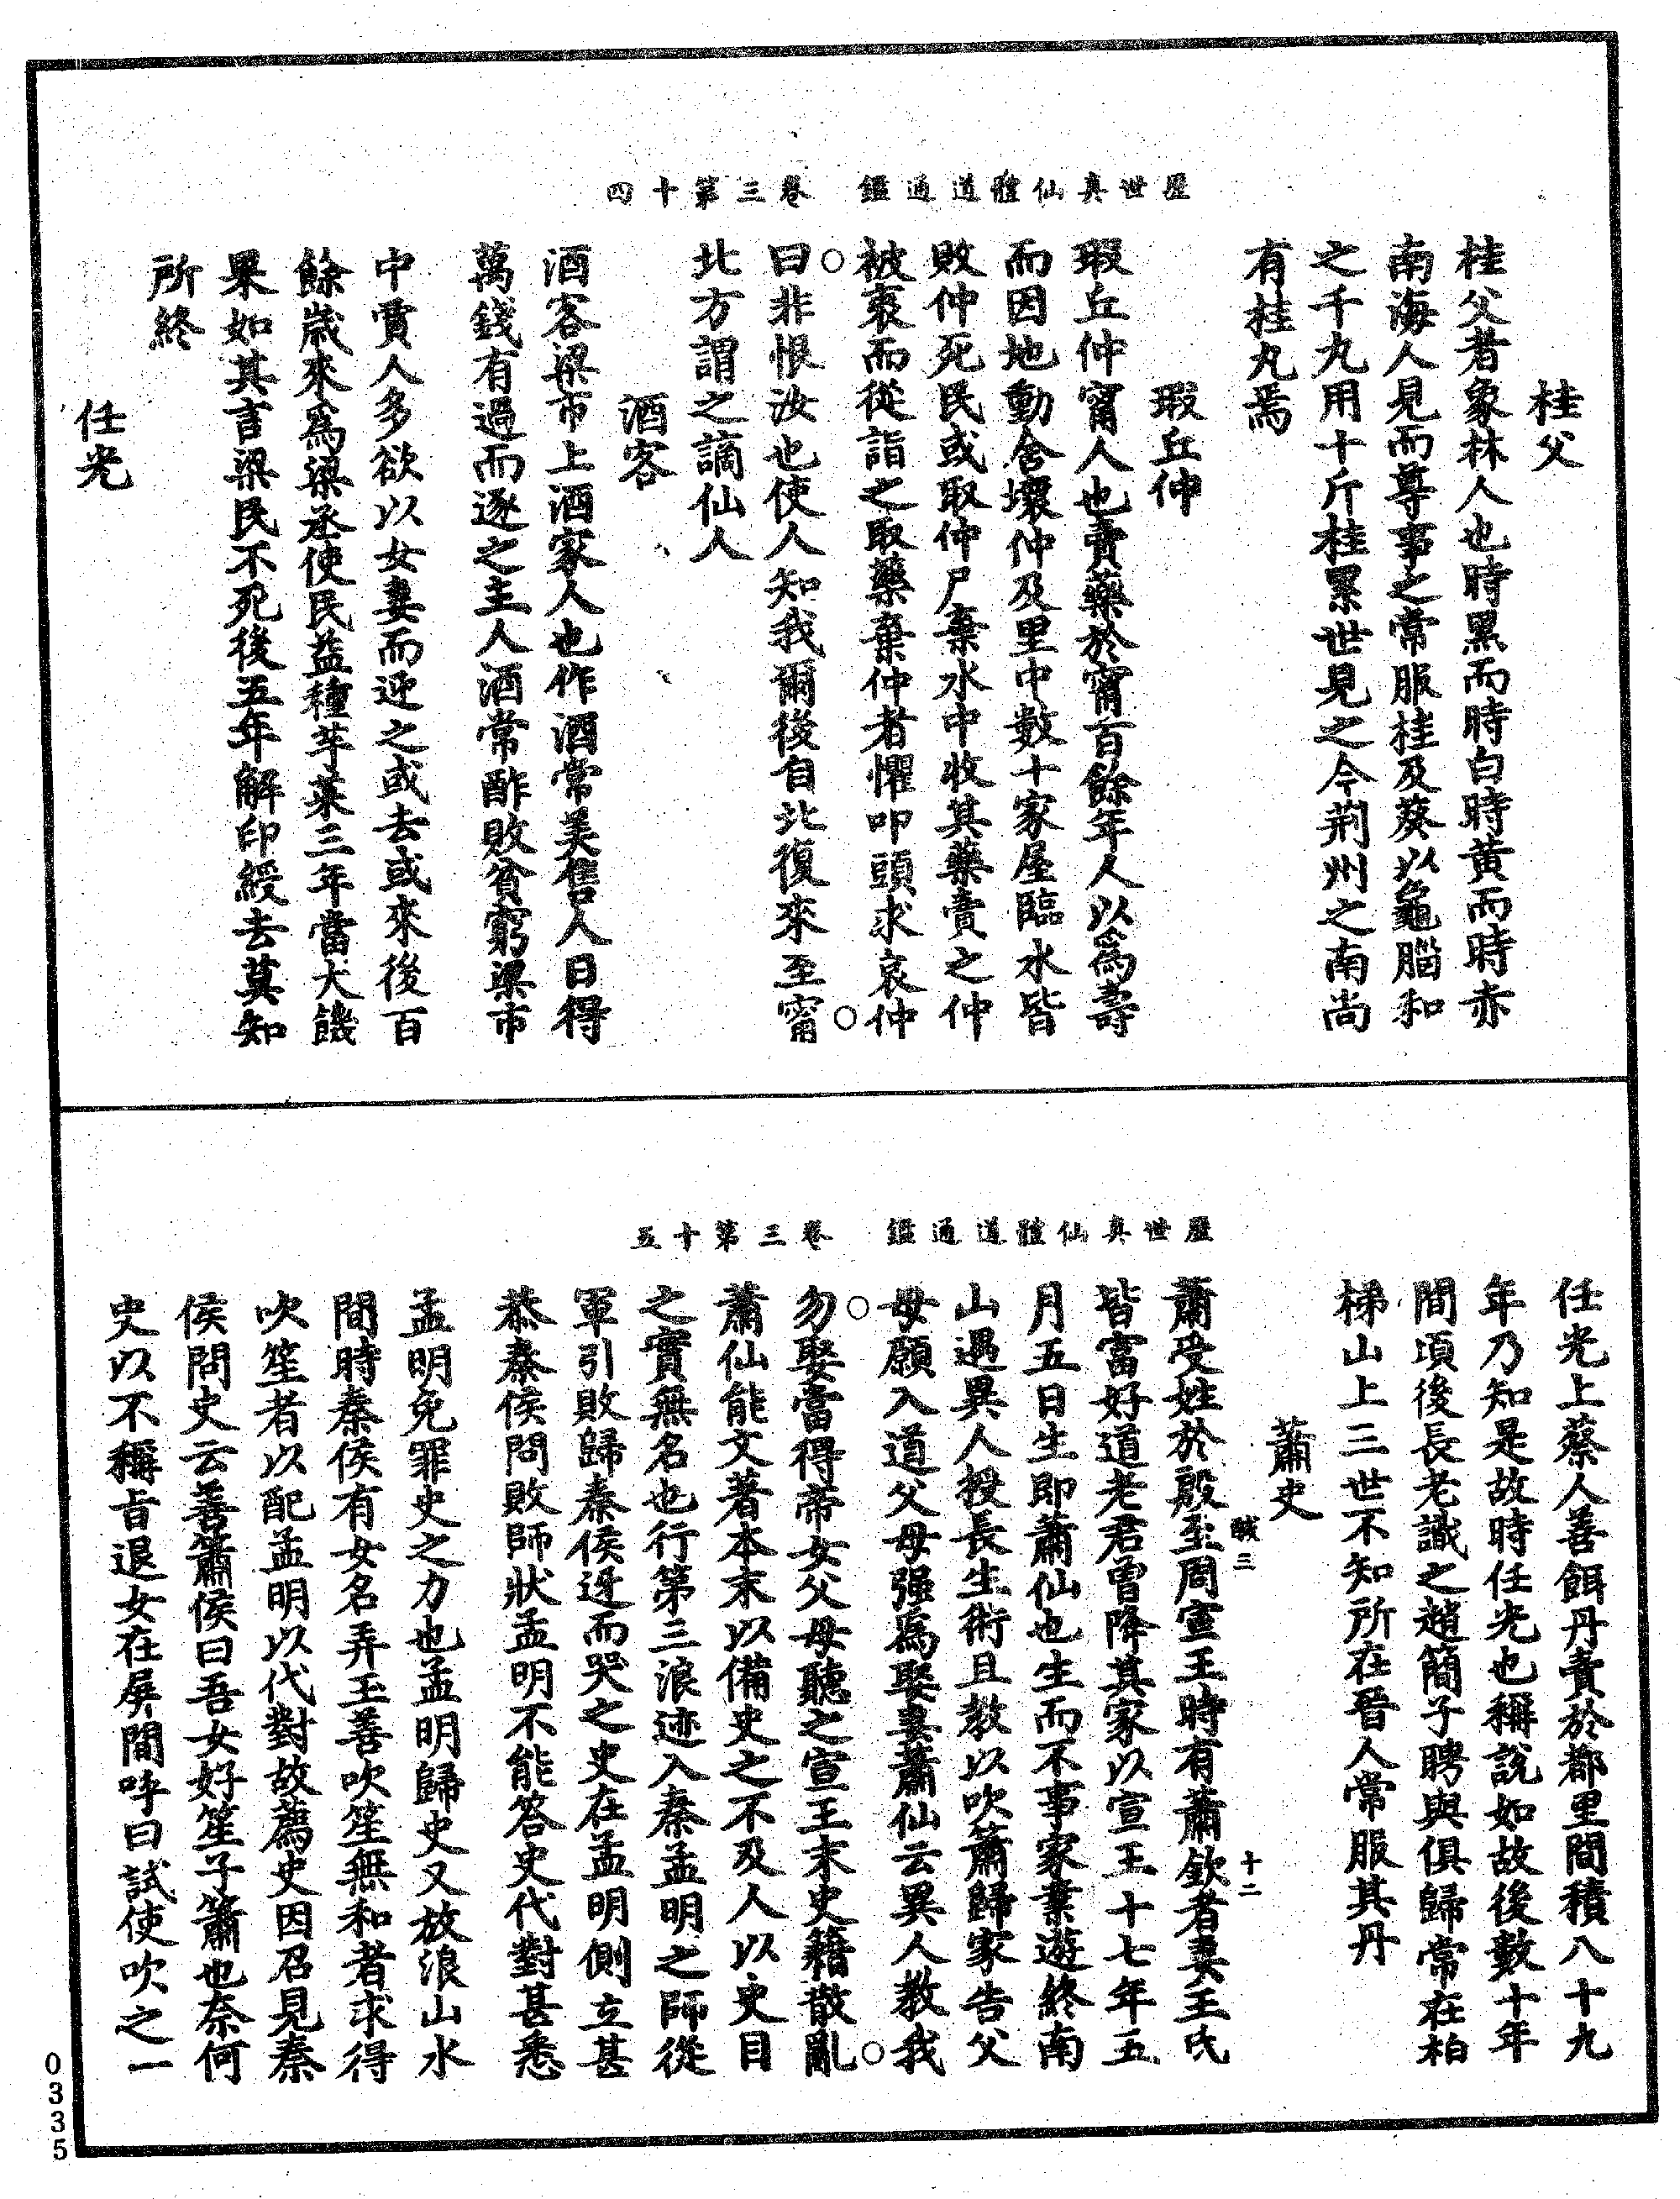 歷世真仙體道通鑑　卷三第十四
桂父
桂父者象林人也時黑而時白時黃而時赤
南海人見而尊事之常服桂及葵以龜腦和
之千丸用十斤桂累世見之今荆州之南尚
有桂丸焉
瑕丘仲
瑕丘仲甯人也賣藥於甯百餘年人以為壽
而因地動舍壞仲及里中數十家屋臨水皆
敗仲死民或取仲尸棄水中收其藥賣之仲
被裘而從詣之取藥棄仲者懼叩頭求哀仲
曰非恨汝也使人知我爾後自北復來至甯
北方謂之謫仙人
酒客
酒客梁市上酒家人也作酒常美售人日得
萬錢有過而逐之主人酒常酢敗貧窮梁市
中賈人多欲以女妻而迎之或去或來後百
餘歲來爲梁丞使民益種芋菜三年當大饑
果如其言梁民不死後五年解印綬去莫知
所終
任光
歷世真仙體道通鑑　卷三第十五
任光上蔡人善餌丹賣於都里間積八十九
年乃知是故時任光也稱說如故後數十年
間頃後長老識之趙簡子聘與俱歸常在柏
梯山上三世不知所在晉人常服其丹
蕭史
蕭受姓於殷至周宣王時有蕭欽者妻王氏
皆富好道老君曾降其家以宣王十七年五
月五日生即蕭仙也生而不事家業遊終南
山遇異人授長生術且教以吹蕭歸家告父
母願入道父母强爲娶妻蕭仙云異人教我
勿娶當得帝女父母聽之宣王末史籍散亂
蕭仙能文著本末以備史之不及人以史目
之實無名也行第三浪迹入秦孟明之師從
軍引敗歸秦侯迓而哭之史在孟明側立甚
恭秦侯問敗師狀孟明不能答史代對甚悉
孟明免罪史之力也孟明歸史又放浪山水
間時秦侯有女名弄玉善吹笙無和者求得
吹笙者以配孟明以代對故薦史因召見秦
侯問史云善簫侯曰吾女好笙子簫也奈何
史以不稱旨退女在屏間呼曰試使吹之一
醎三
十二
0335